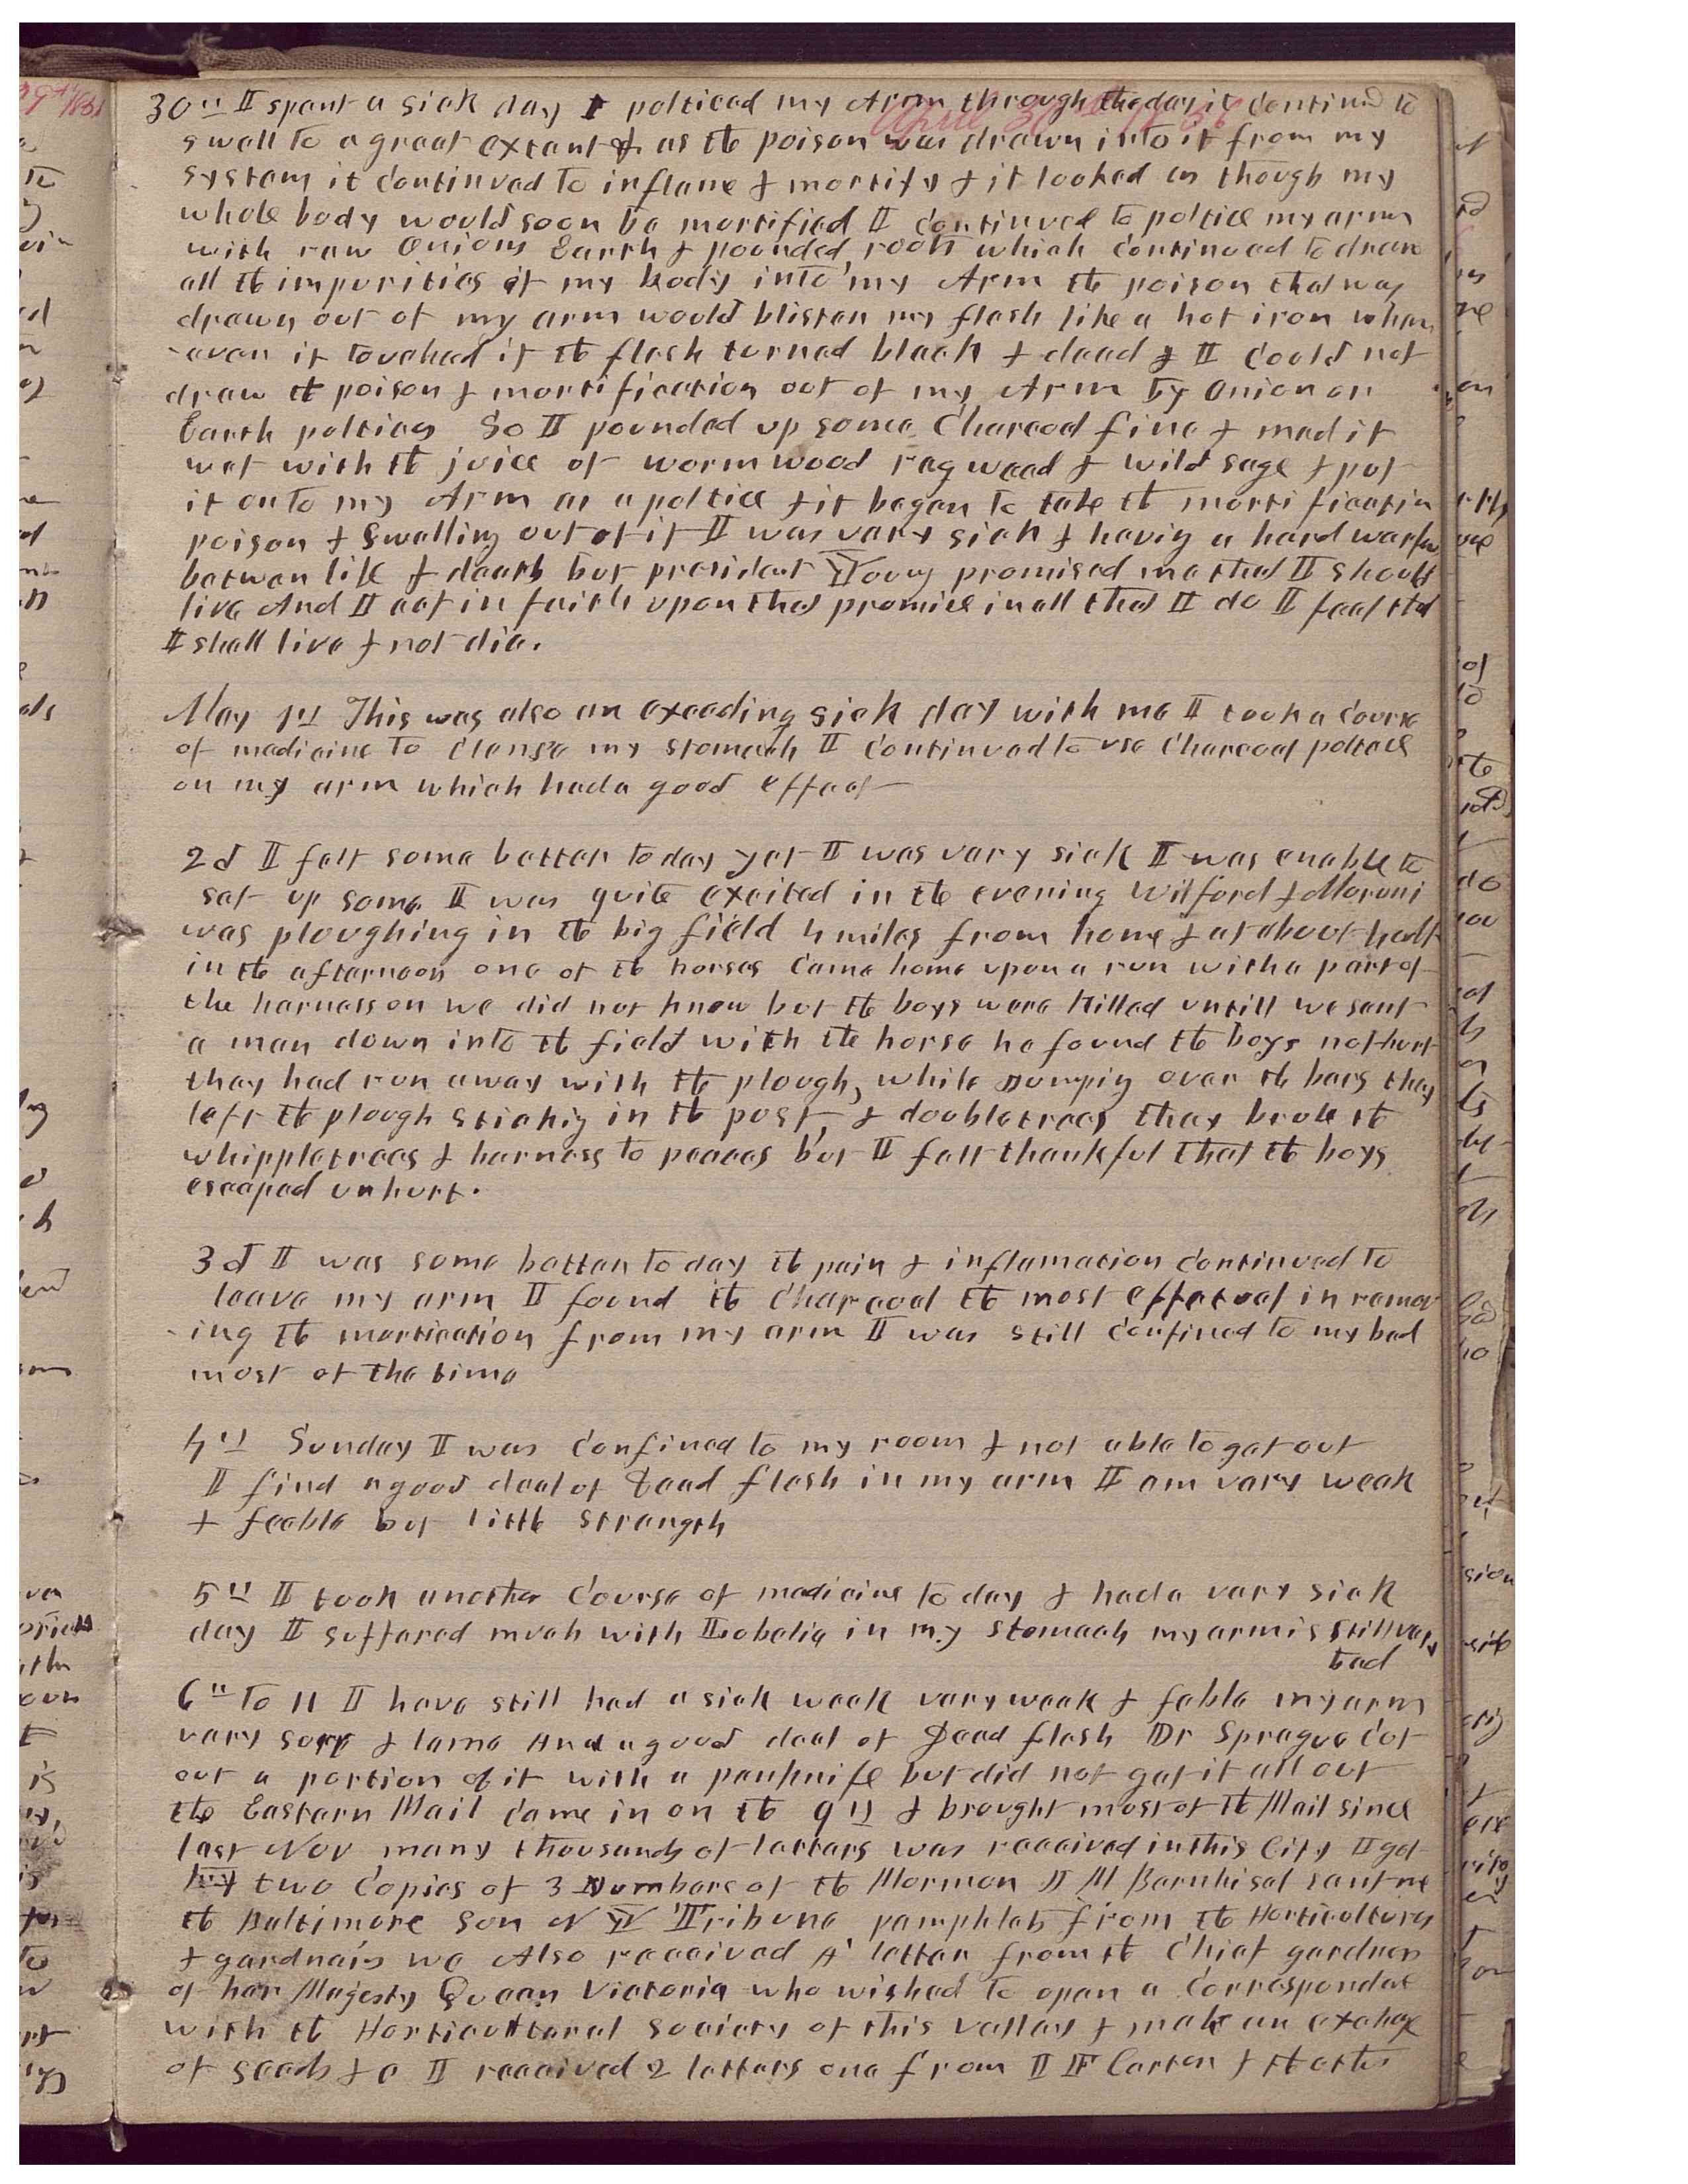 April 30th 1856
30th I spent a sick day I polticed my Arm through the day it continued to
swell to a great extent & as the poison was drawn into it from my
system it continued to inflame & mortify & it looked as though my
whole body would soon be mortified I continued to poltice my arm
with raw onions Earth & pounded roots which continued to draw
all the impurities of my body into my Arm the poison that was
drawn out of my arm would blister my flesh like a hot iron when
-ever it touched it the flesh turned black & dead & I could not
draw the poison & mortification out of my Arm by onion or
Earth poltices So I pounded up some Charcoal fine & mad it
wet with the juice of wormwood ragweed & wild sage & put
it onto my Arm as a poltice & it began to take the mortification
poison & swelling out of it I was very sick & having a hard warfare
betwen life & death but president Young promised me that I should
live And I act in faith upon that promise in all that I do I feel that
I shall live & not die.
May 1st This was also an exceeding sick day with me I took a course
of medicine to clense my stomach I continued to use Charcoal poltice
on my arm which had a good effect
2d I felt some better to day yet I was very sick I was enable to
set up some I was quite excited in the evening Wilford & Moroni
was ploughing in the big field 4 miles from home & at about half
in the afternoon one of the horses came home upon a run with a part of
the harness on we did not know but the boys were killed untill we sent
a man down into the field with the horse he found the boys not hurt
they had run away with the plough, while jumping over the bars they
left the plough sticking in the post, & doubletrees they broke the
whippletrees & harness to peaces but I felt thankful that the boys
escaped unhurt.
3d I was some better to day the pain & inflamation continued to
leave my arm I found the charcoal the most effectual in remov
-ing the mortication from my arm I was still confined to my bed
most of the time
4th Sunday I was confined to my room & not able to get out
I find a good deal of Dead flesh in my arm I am very weak
& feeble but little strength
5th I took another course of medicine to day & had a very sick
day I suffered much with Lobelia in my stomach my arm is still very
bad
6th to 11 I have still had a sick week very weak & feble my arm
very sore & lame And a good deal of Dead flesh Dr Sprague cut
out a portion of it with a penknife but did not get it all out
the Eastern Mail came in on the 9th & brought most of the Mail since
last Nov many thousands of letters was received in this City I got
two Copies of 3 Numbers of the Mormon J M Barnhisel sent me
the Baltimore Sun N Y Tribune pamphlets from the Horticulturs
& gardnais we Also received A letter from the Chief gardner
of her Majesty Queen Victoria who wished to open a correspondace
with the Horticultural society of this valley & make an exchage
of seeds &c I received 2 letters one from I F Carter & the other